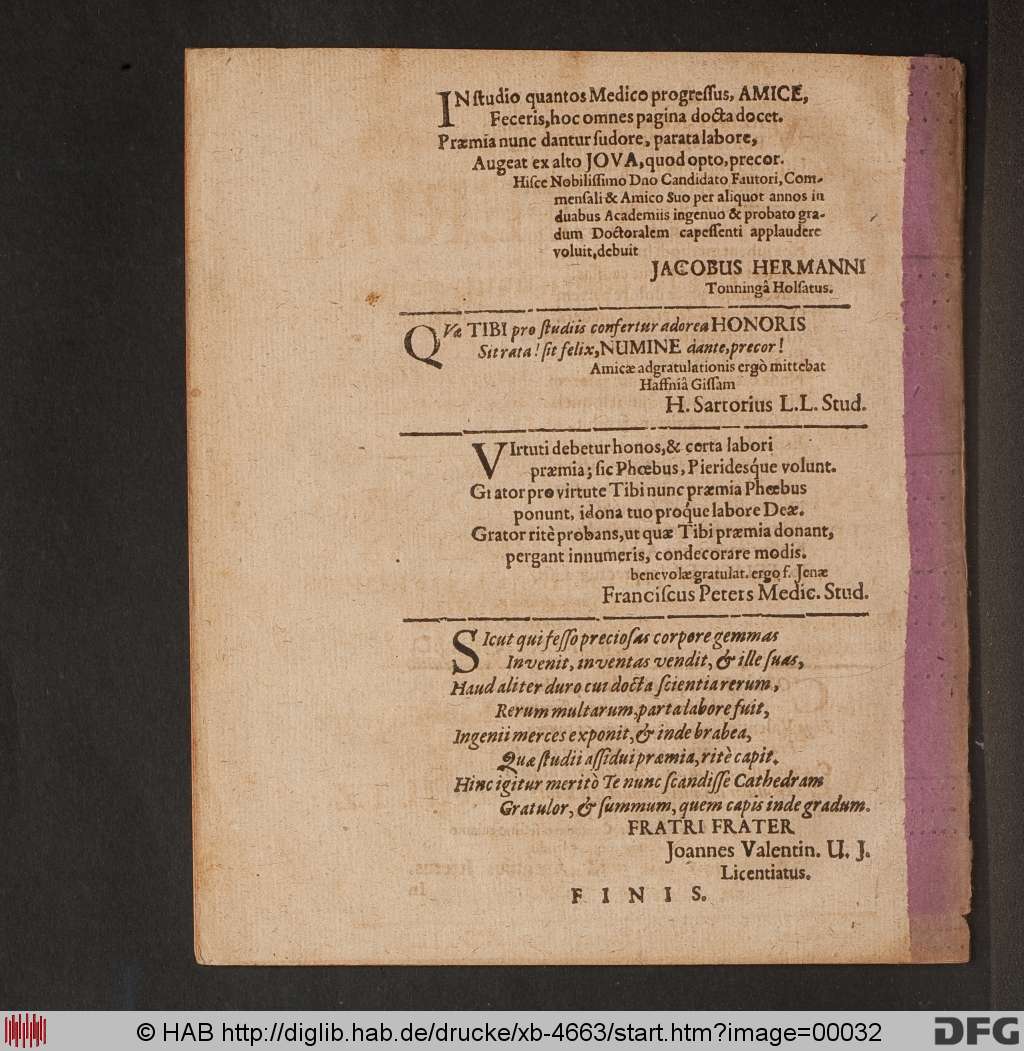 IN ſtudio quantos Medico progreſſus, AMICE,
Feceris, hoc omnes pagina docta docet.
Præmia nunc dantur ſudore, parata labore,
Augeat ex alto JOVA, quod opto, precor.
Hiſce Nobiliſſimo Dno Candidato Fautori, Com-
menſali & Amico Suo per aliquot annos in
duabus Academiis ingenuo & probato gra-
dum Doctoralem capeſſenti applaudere
voluit, debuit
JACOBUS HERMANNI
Tonningâ Holſatus.
QVæ TIBI pro ſtudiis confertur adorea HONORIS
Sit rata! ſit felix, NUMINE dante, precor!
Amicæ adgratulationis ergò mittebat
Haffniâ Giſſam
H. Sartorius L.L. Stud.
VIrtuti debetur honos, & certa labori
præmia; ſic Phœbus, Pieridesq́ue volunt.
Grator pro virtute Tibi nunc præmia Phœbus
ponunt, idona tuo proq́ue labore Deæ.
Grator ritè probans, ut quæ Tibi præmia donant,
pergant innumeris, condecorare modis.
benevolæ gratulat. ergo f. Jenæ
Franciſcus Peters Medic. Stud.
SIcut qui feſſo precioſas corpore gemmas
Invenit, inventas vendit, & ille ſuas,
Haud aliter duro cui docta ſcientia rerum,
Rerum multarum, parta labore fuit,
Ingenii merces exponit, & inde brabea,
Quæ ſtudii aſſidui præmia, ritè capit.
Hinc igitur meritò Te nunc ſcandiſſe Cathedram
Gratulor, & ſummum, quem capis inde gradum.
FRATRI FRATER
Joannes Valentin. U. J.
Licentiatus.
FINIS.
© HAB http://diglib.hab.de/drucke/xb-4663/start.htm?image=00032
DFG